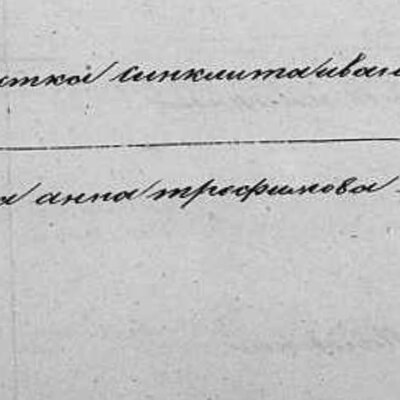 тка синклита иван
а анна трофимова